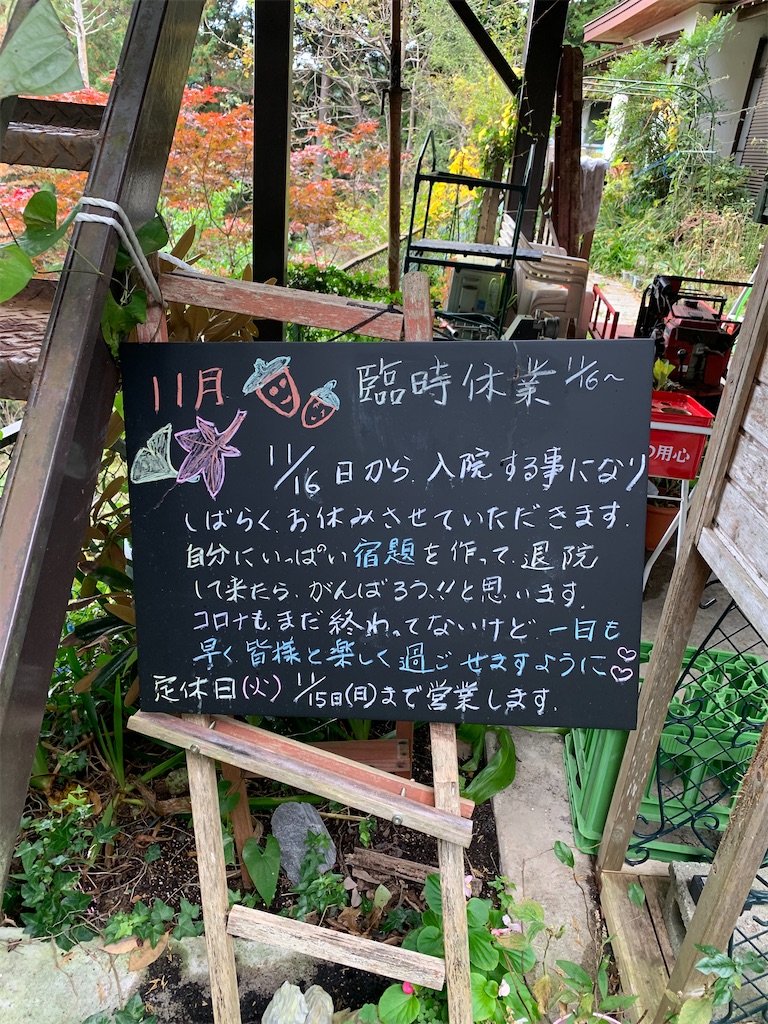 11月 臨時休業 11/16～
11/16日から、入院する事になり
しばらく、お休みさせていただきます。
自分にいっぱい宿題を作って、退院
して来たら、がんばろう!!と思います。
コロナも、まだ終わってないけど、一日も
早く皆様と楽しく過ごせますように♡♡
定休日(火) 11/15日(日)まで営業します。
の用心